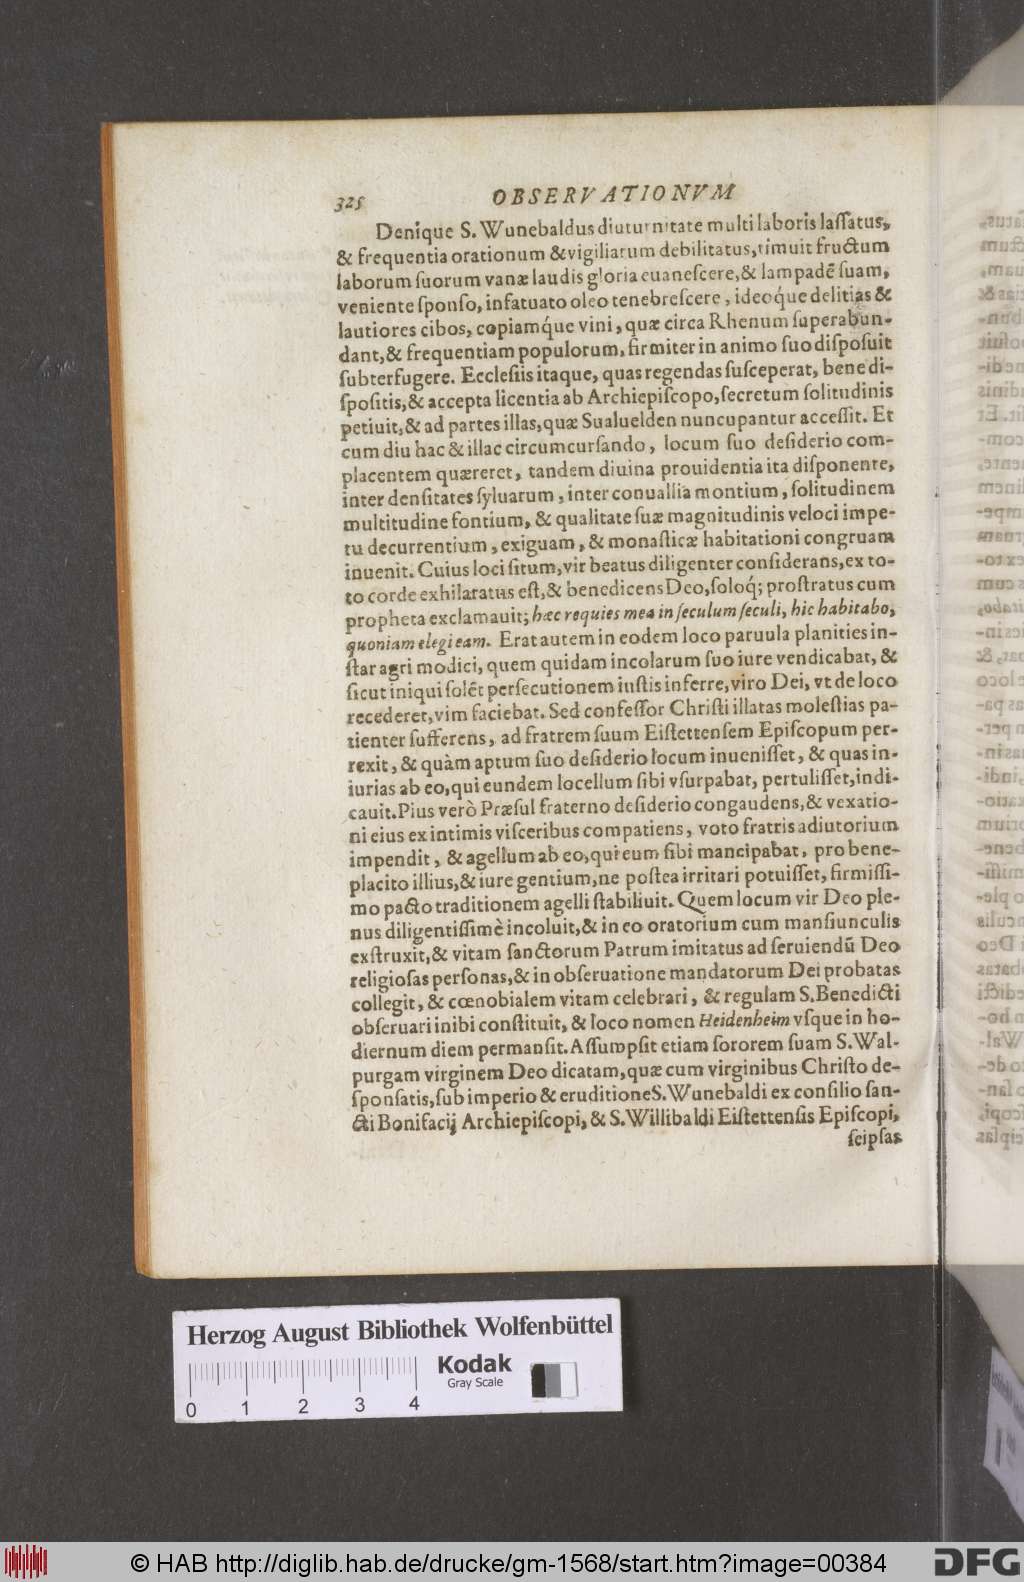 325 OBSERVATIONVM
Denique S. Wunebaldus diuturnitate multi laboris laſſatus,
& frequentia orationum & vigiliarum debilitatus, timuit fructum
laborum ſuorum vanæ laudis gloria euaneſcere, & lampadē ſuam,
veniente ſponſo, infatuato oleo tenebreſcere, ideoq́ue delitias &
lautiores cibos, copiamq́ue vini, quæ circa Rhenum ſuperabun-
dant, & frequentiam populorum, firmiter in animo ſuo diſpoſuit
ſubterfugere. Eccleſiis itaque, quas regendas ſuſceperat, bene di-
ſpoſitis, & accepta licentia ab Archiepiſcopo, ſecretum ſolitudinis
petiuit, & ad partes illas, quæ Sualuelden nuncupantur acceſſit. Et
cum diu hac & illac circumcurſando, locum ſuo deſiderio com-
placentem quæreret, tandem diuina prouidentia ita diſponente,
inter denſitates ſyluarum, inter conuallia montium, ſolitudinem
multitudine fontium, & qualitate ſuæ magnitudinis veloci impe-
tu decurrentium, exiguam, & monaſticæ habitationi congruam
inuenit. Cuius loci ſitum, vir beatus diligenter conſiderans, ex to-
to corde exhilaratus eſt, & benedicens Deo, ſoloq́; proſtratus cum
propheta exclamauit; hæc requies mea in ſeculum ſeculi, hic habitabo,
quoniam elegi eam. Erat autem in eodem loco paruula planities in-
ſtar agri modici, quem quidam incolarum ſuo iure vendicabat, &
ſicut iniqui ſolēt perſecutionem iuſtis inferre, viro Dei, vt de loco
recederet, vim faciebat. Sed confeſſor Chriſti illatas moleſtias pa-
tienter ſufferens, ad fratrem ſuum Eiſtettenſem Epiſcopum per-
rexit, & quàm aptum ſuo deſiderio locum inueniſſet, & quas in-
iurias ab eo, qui eundem locellum ſibi vſurpabat, pertuliſſet, indi-
cauit. Pius verò Præſul fraterno deſiderio congaudens, & vexatio-
ni eius ex intimis viſceribus compatiens, voto fratris adiutorium
impendit, & agellum ab eo, qui eum ſibi mancipabat, pro bene-
placito illius, & iure gentium, ne poſtea irritari potuiſſet, firmiſſi-
mo pacto traditionem agelli ſtabiliuit. Quem locum vir Deo ple-
nus diligentiſſimè incoluit, & in eo oratorium cum manſiunculis
exſtruxit, & vitam ſanctorum Patrum imitatus ad ſeruiendū Deo
religioſas perſonas, & in obſeruatione mandatorum Dei probatas
collegit, & cœnobialem vitam celebrari, & regulam S. Benedicti
obſeruari inibi conſtituit, & loco nomen Heidenheim vſque in ho-
diernum diem permanſit. Aſſumpſit etiam ſororem ſuam S. Wal-
purgam virginem Deo dicatam, quæ cum virginibus Chriſto de-
ſponſatis, ſub imperio & eruditione S. Wunebaldi ex conſilio ſan-
cti Bonifacij Archiepiſcopi, & S. Willibaldi Eiſtettenſis Epiſcopi,
ſeipſas
Herzog August Bibliothek Wolfenbüttel
Kodak
Gray Scale
0 1 2 3 4
© HAB http://diglib.hab.de/drucke/gm-1568/start.htm?image=00384
DFG